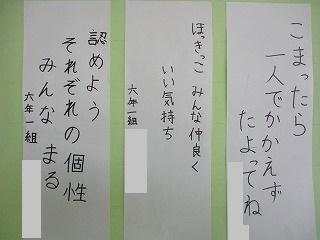 こまったら
一人でかかえず
たよってね
ほっきっこ みんな仲良く
いい気持ち
六年一組
認めよう
それぞれの個性
みんな まる
六年一組